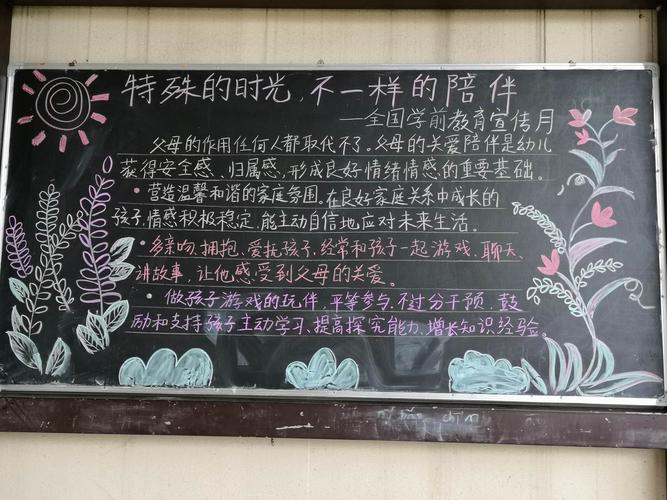 特殊的时光，不一样的陪伴
——全国学前教育宣传月
父母的作用任何人都取代不了。父母的关爱陪伴是幼儿
获得安全感、归属感，形成良好情绪情感的重要基础。
• 营造温馨和谐的家庭氛围。在良好家庭关系中成长的
孩子，情感积极稳定，能主动自信地应对未来生活。
• 多亲吻、拥抱、爱抚孩子，经常和孩子一起游戏、聊天、
讲故事，让他感受到父母的关爱。
• 做孩子游戏的玩伴，平等参与，不过分干预，鼓
励和支持孩子主动学习、提高探究能力、增长知识经验。